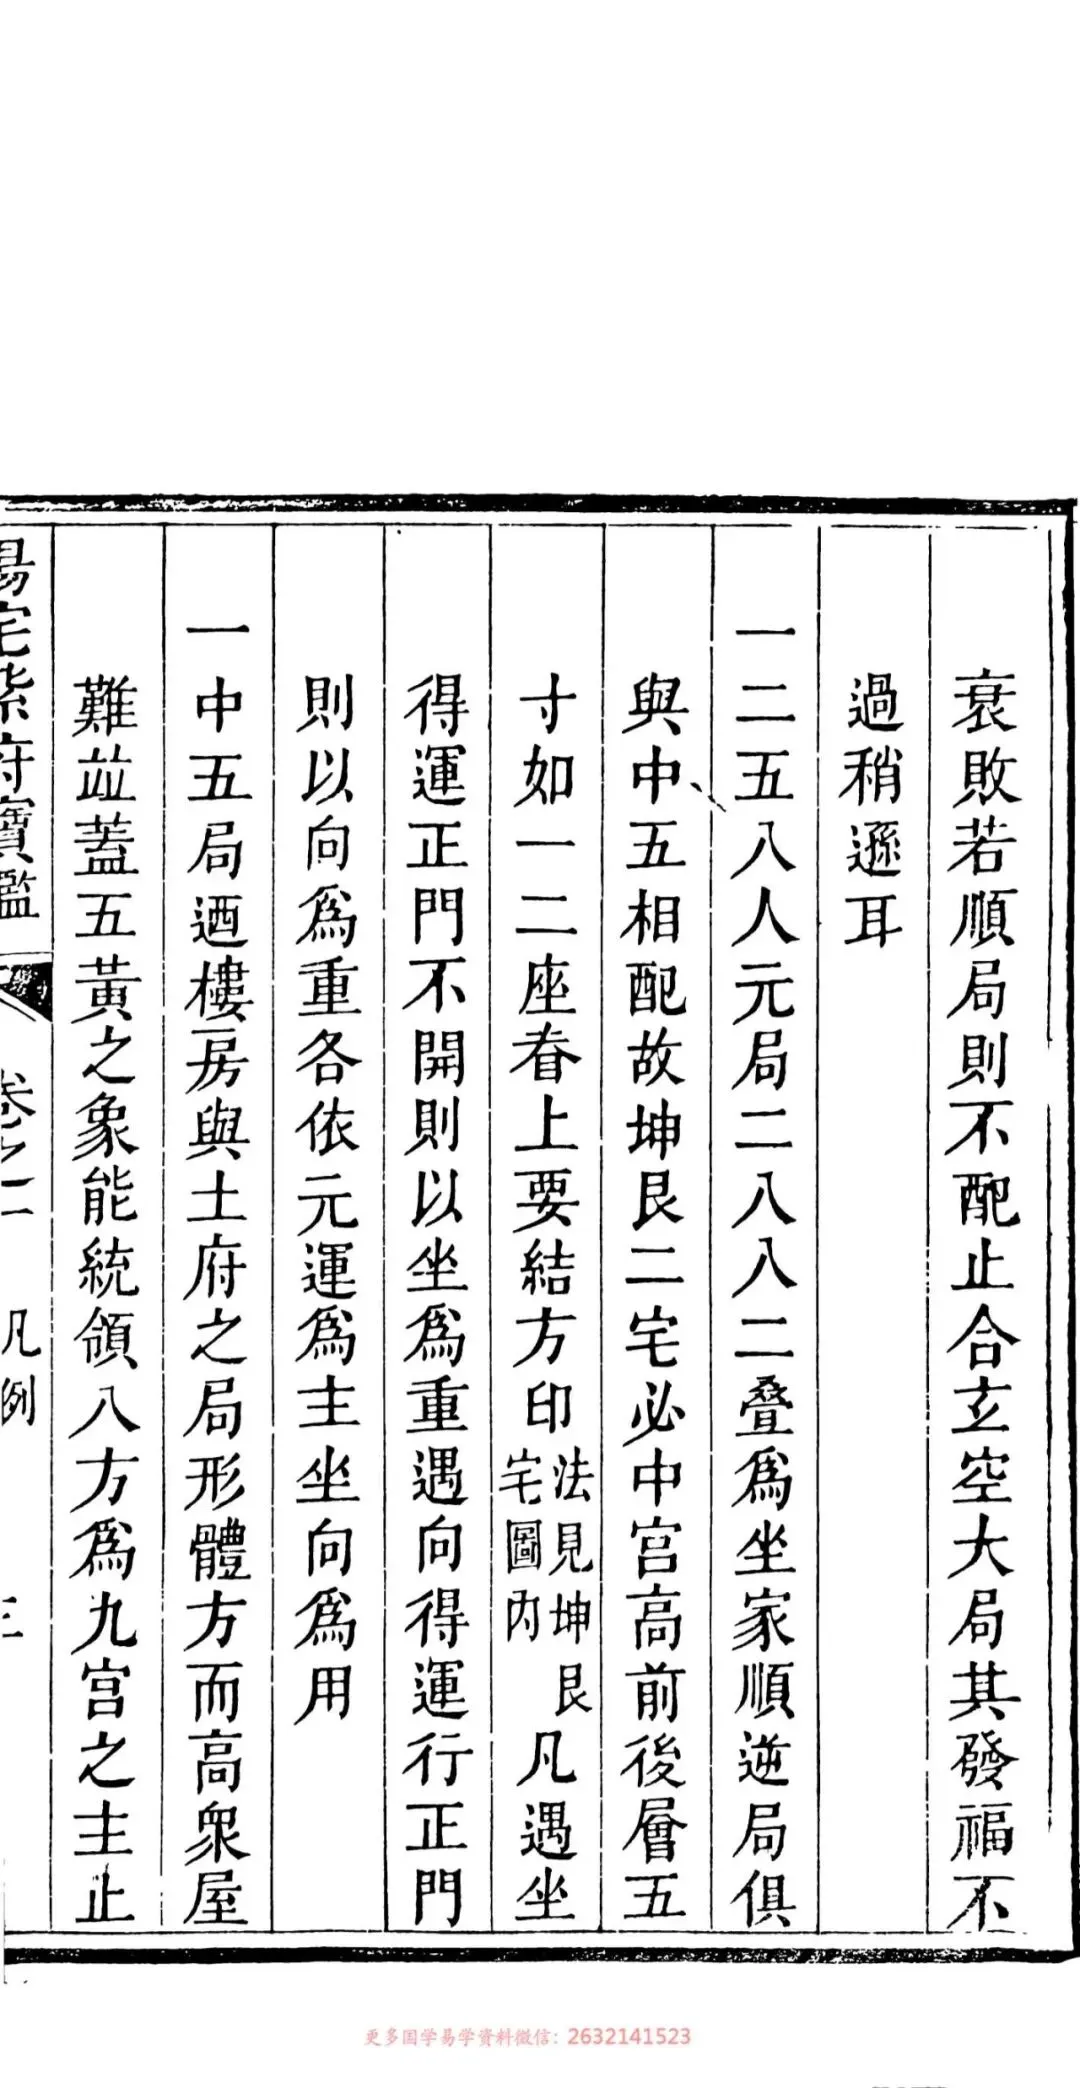 衰敗若順局則不配止合玄空大局其發福不
過稍遜耳
一二五八人元局二八八二叠為坐家順逆局俱
與中五相配故坤艮二宅必中宮高前後層五
寸如一二座眷上要結方印法見坤艮宅圖內凡遇坐
得運正門不開則以坐為重遇向得運行正門
則以向為重各依元運為主坐向為用
一中五局迺樓房與土府之局形體方而高衆屋
難並蓋五黃之象能統領八方為九宮之主止
陽宅紫府寶鑑 卷之二 凡例 三
更多国学易学资料微信：2632141523